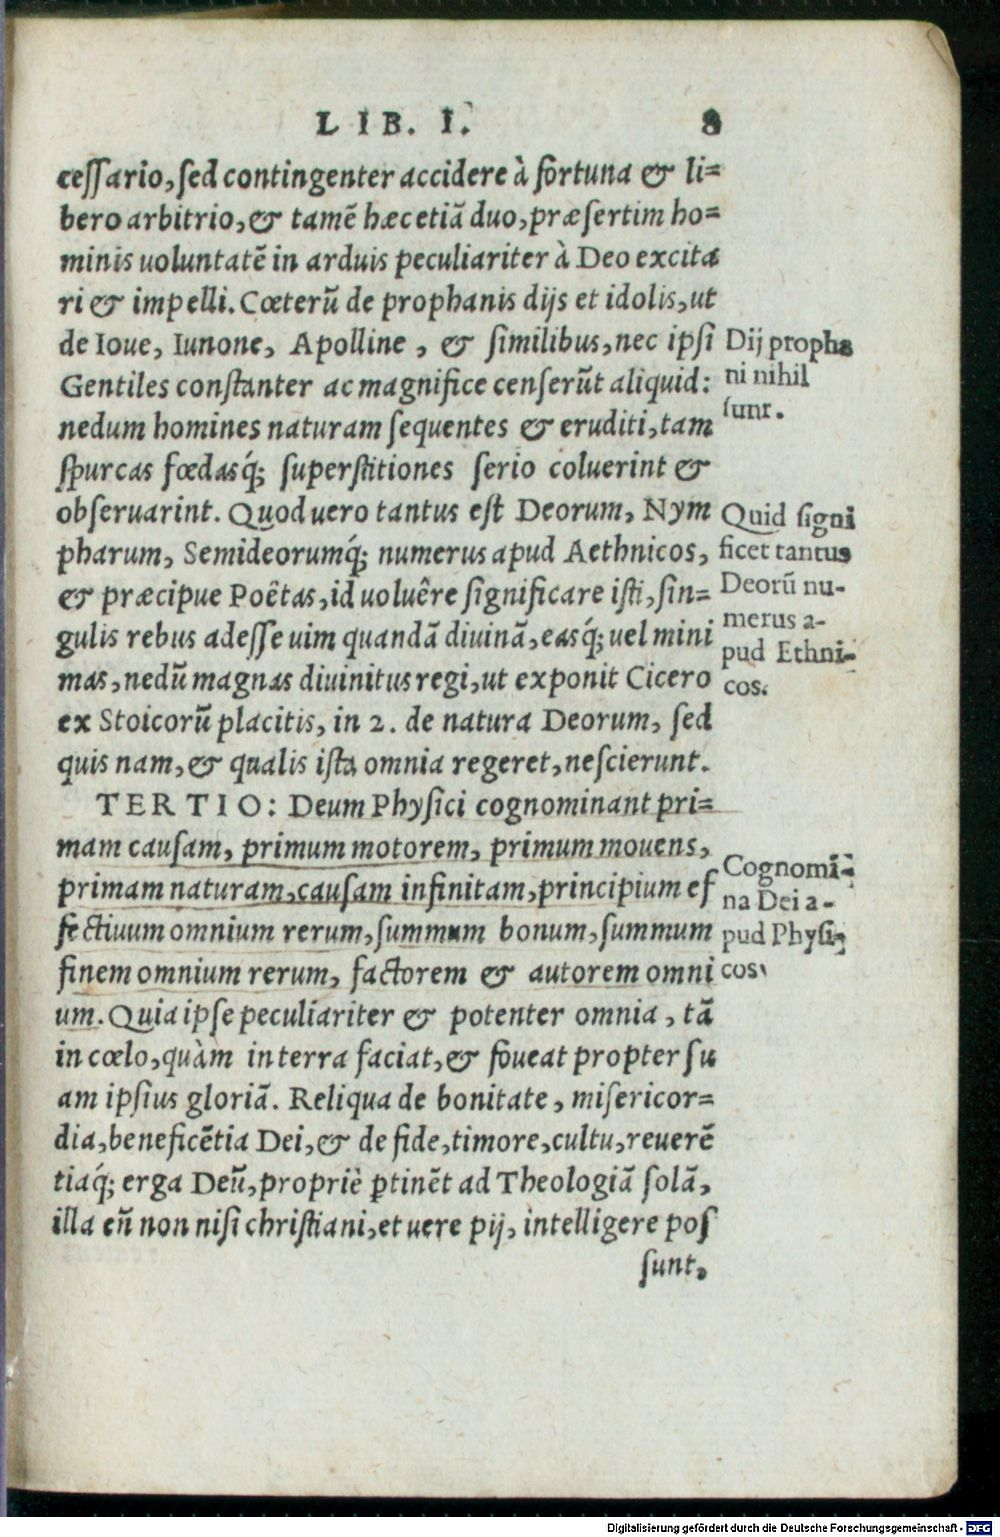 LIB. I. 8
cessario, sed contingenter accidere à fortuna & li=
bero arbitrio, & tamē hæc etiā duo, præsertim ho=
minis uoluntatē in arduis peculiariter à Deo excita
ri & impelli. Cœterū de prophanis dijs et idolis, ut
de Ioue, Iunone, Apolline, & similibus, nec ipsi
Gentiles constanter ac magnifice censerūt aliquid:
nedum homines naturam sequentes & eruditi, tam
spurcas fœdasq́; superstitiones serio coluerint &
obseruarint. Quod uero tantus est Deorum, Nym
pharum, Semideorumq́; numerus apud Aethnicos,
& præcipue Poëtas, id uoluêre significare isti, sin=
gulis rebus adesse uim quandā diuinā, easq́; uel mini
mas, nedū magnas diuinitus regi, ut exponit Cicero
ex Stoicorū placitis, in 2. de natura Deorum, sed
quis nam, & qualis ista omnia regeret, nescierunt.
TERTIO: Deum Physici cognominant pri=
mam causam, primum motorem, primum mouens,
primam naturam, causam infinitam, principium ef
fectiuum omnium rerum, summum bonum, summum
finem omnium rerum, factorem & autorem omni
um. Quia ipse peculiariter & potenter omnia, tā
in cœlo, quàm in terra faciat, & foueat propter su
am ipsius gloriā. Reliqua de bonitate, misericor=
dia, beneficētia Dei, & de fide, timore, cultu, reuerē
tiaq́; erga Deū, propriè ꝑtinēt ad Theologiā solā,
illa eñ non nisi christiani, et uere pij, intelligere pos
sunt,
Dij propha
ni nihil
sunt.
Quid signi
ficet tantus
Deorū nu-
merus a-
pud Ethni-
cos.
Cognomi-
na Dei a-
pud Physi-
cos.
Digitalisierung gefördert durch die Deutsche Forschungsgemeinschaft - DFG